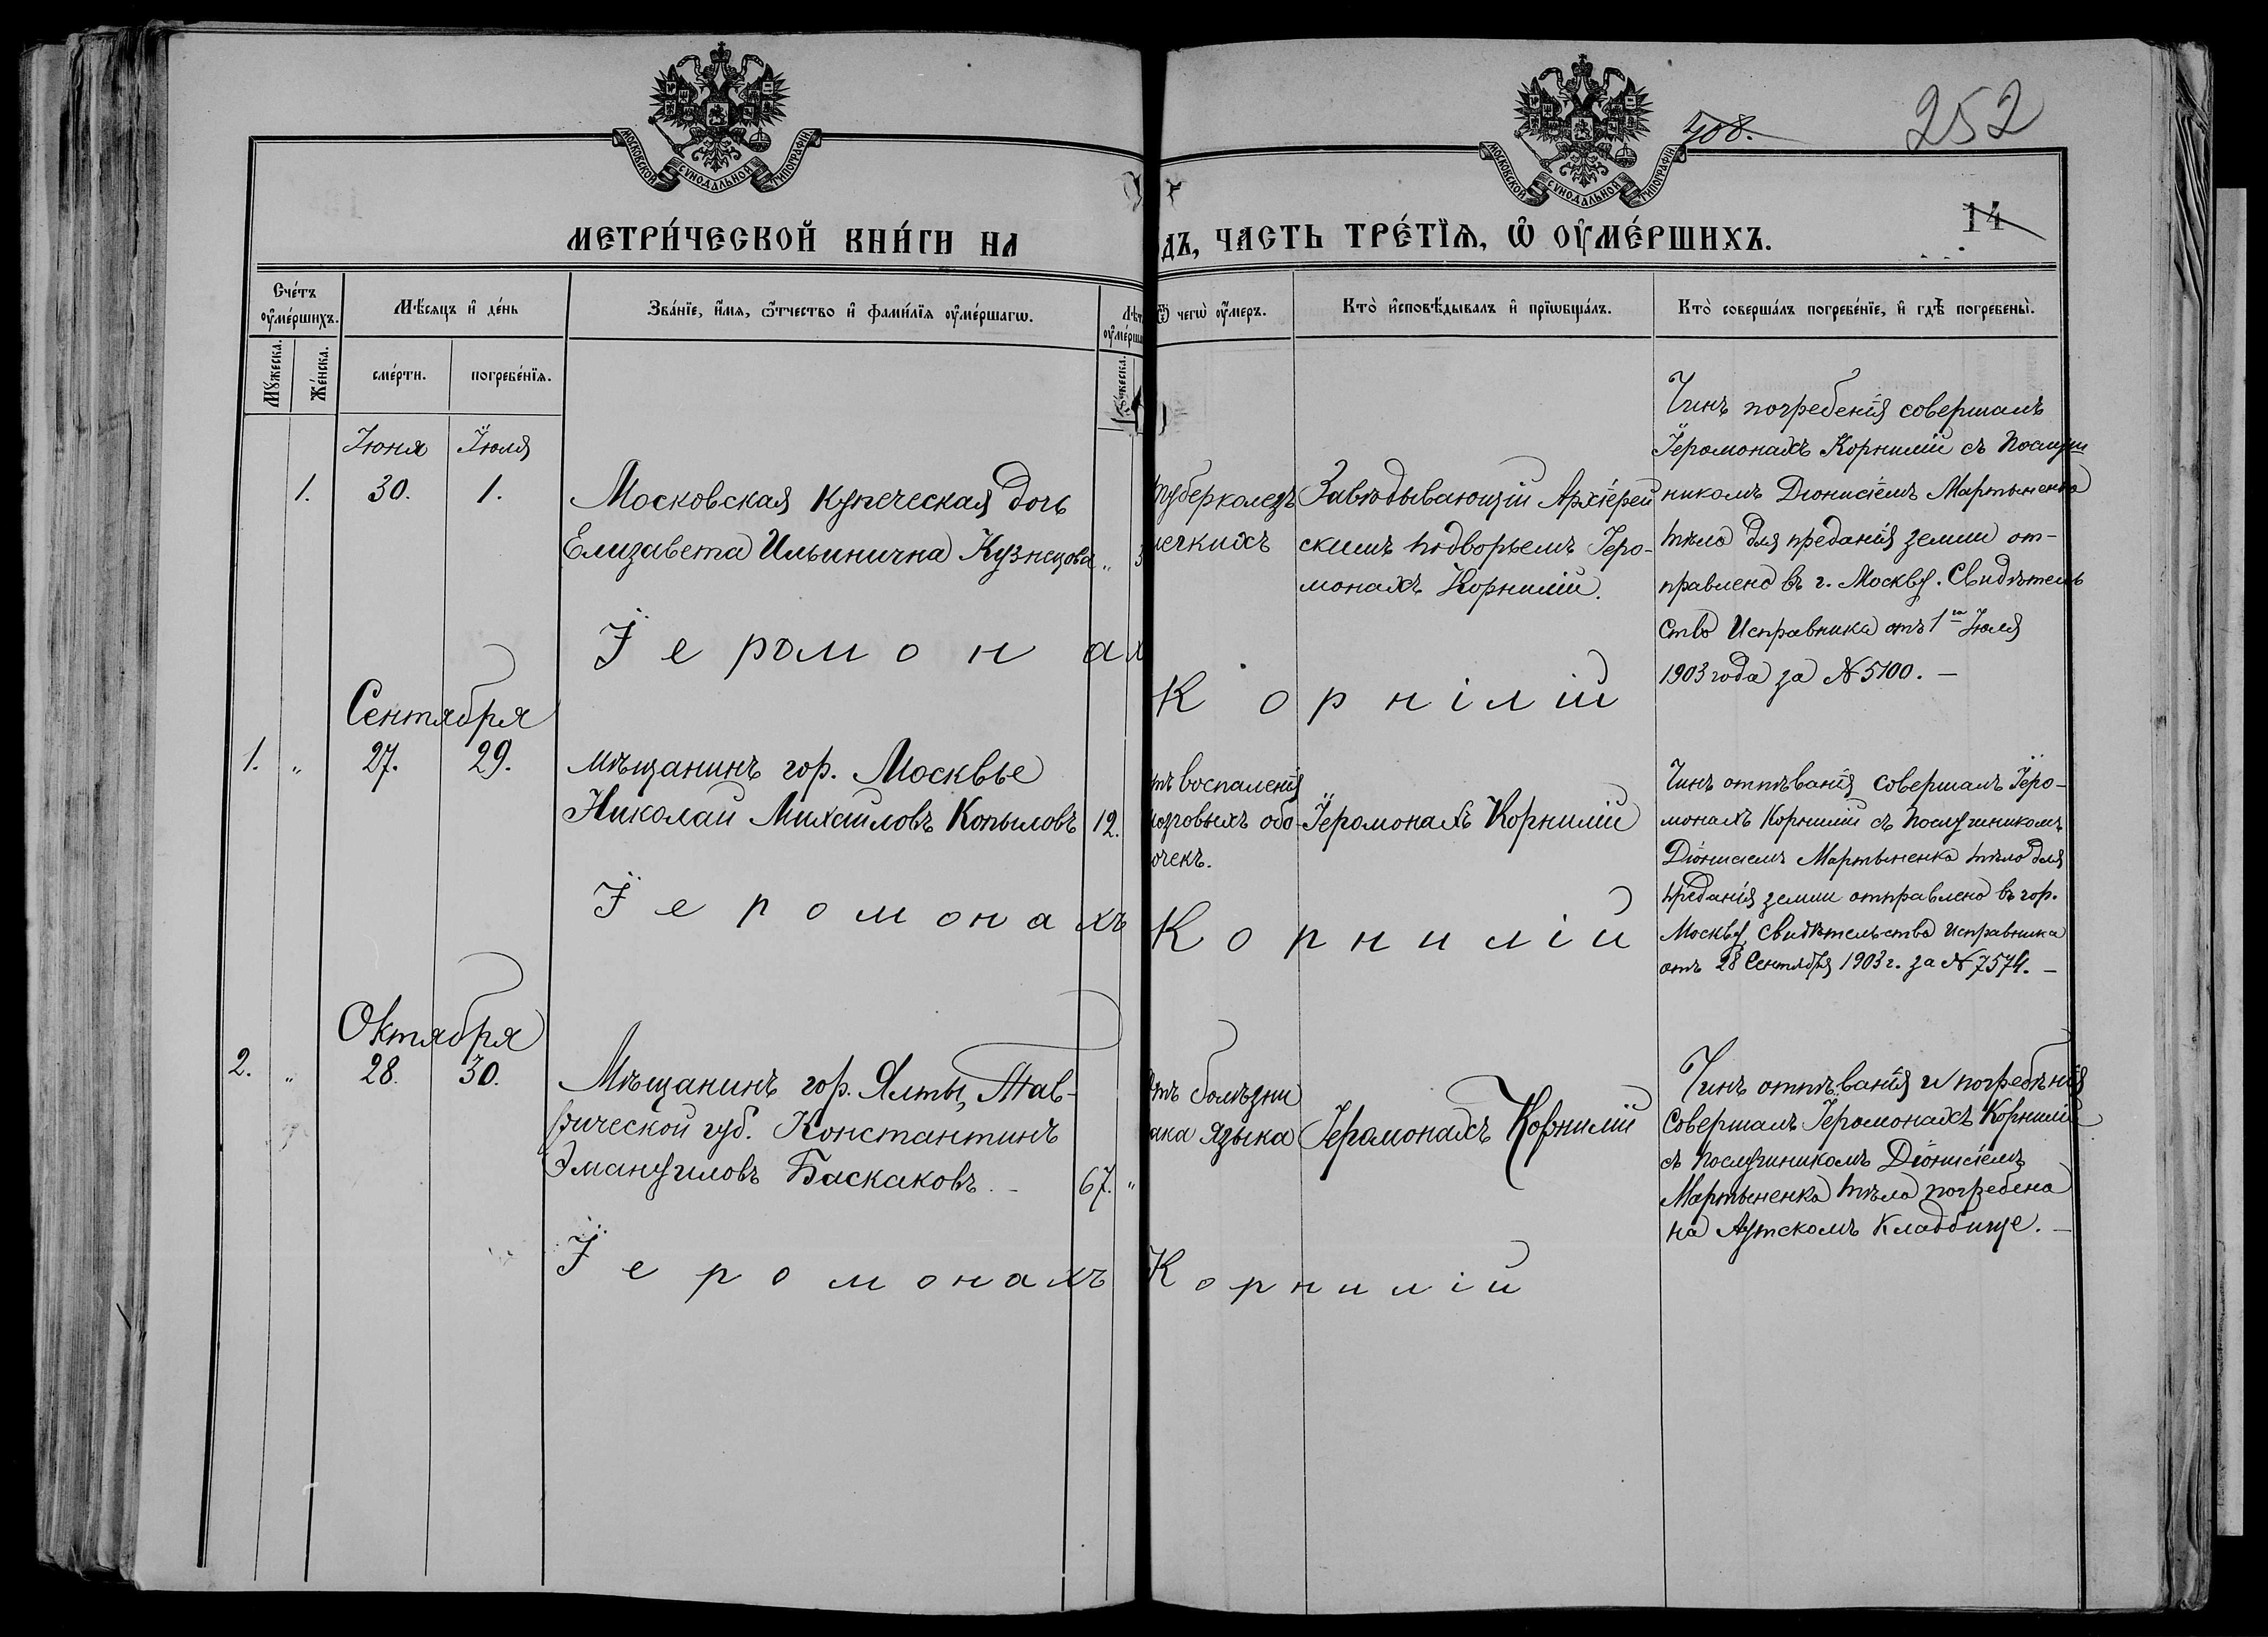 МОСКОВСКОЙ СѴНОДАЛЬНОЙ ТИПОГРАФІИ
МОСКОВСКОЙ СѴНОДАЛЬНОЙ ТИПОГРАФІИ
408.
252
14
МЕТРИ́ЧЕСКОЙ КНИ́ГИ НА
ДЪ, ЧАСТЬ ТРЕ́ТІѦ, Ѡ ОУ҆МЕ́РШИХЪ.
Сче́тъ оу҆ме́ршихъ.
Мѣ́сяцъ и҆ де́нь
Зва́нїе, и҆́мѧ, ѻ҆́тчество и҆ фами́лїѧ оу҆ме́ршагѡ.
Ѿ чегѡ̀ оу҆́меръ.
Кто̀ и҆сповѣ́дывалъ и҆ прїѡбща́лъ.
Кто̀ соверша́лъ погребе́нїе, и҆ гдѣ̀ погребены̀.
Мꙋ́жеска.
Же́нска.
сме́рти.
погребе́нїѧ.
Мꙋ́жеска.
Іюня
Іюля
1.
30.
1.
Московская купеческая дочь
Елизавета Ильинична Кузнецова
"
туберколезъ
легкихъ
Завѣдывающій Архіерей
скимъ подворьемъ Іеро-
монахъ Корнилій.
Чинъ погребенія совершалъ
Іеромонахъ Корнилій съ послуш
никомъ Діонисіемъ Мартыненко
тѣло для преданія земли от-
правлено въ г. Москву. Свидѣтель
ство Исправника отъ 1го Іюля
1903 года за № 5100. –
Іеромонах
Корнілій
Сентября
1.
"
27.
29.
мѣщанинъ гор. Москвы
Николай Михаиловъ Копыловъ
12.
тъ воспаленія
мозговыхъ обо-
очекъ.
Іеромонахъ Корнилій
Чинъ отпѣванія совершалъ Іеро-
монахъ Корнилій съ послушникомъ
Діонисіемъ Мартыненка тѣло для
преданія земли отправлено въ гор.
Москву, свидѣтельство исправника
отъ 28 Сентября 1903 г. за № 7574. –
Іеромонахъ
Корнилій
Октября
2.
"
28.
30.
Мѣщанинъ гор. Ялты, Тав-
рической губ. Константинъ
Эмануиловъ Баскаковъ. –
67.
"
тъ болѣзни
ака языка
Іеромонахъ Корнилій
Чинъ отпѣванія и погребѣнія
совершалъ Іеромонахъ Корнилій
съ послушникомъ Діонисіемъ
Мартыненка тѣло погребена
на Аутскомъ кладбище. –
Іеромонахъ
Корнилій